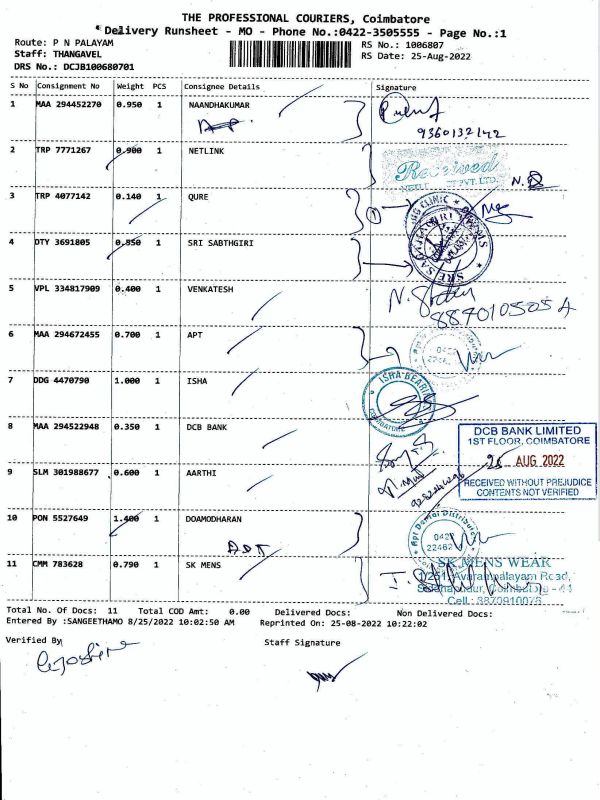 THE PROFESSIONAL COURIERS, Coimbatore
Delivery Runsheet - MO - Phone No.:0422-3505555 - Page No.:1
Route: P N PALAYAM
Staff: THANGAVEL
DRS No.: DCJB100680701
RS No.: 1006807
RS Date: 25-Aug-2022
S No Consignment No Weight PCS Consignee Details Signature
1 MAA 294452270 0.950 1 NAANDHAKUMAR
9360132142
2 TRP 7771267 0.900 1 NETLINK
Received
PVT. LTD.
3 TRP 4077142 0.140 1 QURE
CLINIC
4 DTY 3691805 0.550 1 SRI SABTHGIRI
5 VPL 334817909 0.400 1 VENKATESH
6 MAA 294672455 0.700 1 APT
0422
7 DDG 4470790 1.000 1 ISHA
ISHA BEARING
COIMBATORE
8 MAA 294522948 0.350 1 DCB BANK
DCB BANK LIMITED
1ST FLOOR, COIMBATORE
AUG 2022
RECEIVED WITHOUT PREJUDICE
CONTENTS NOT VERIFIED
9 SLM 301988677 0.600 1 AARTHI
10 PON 5527649 1.400 1 DOAMODHARAN
Apt Dental Distributors
0422
11 CMM 783628 0.790 1 SK MENS
SK MENS WEAR
Avarampalayam Road,
Total No. Of Docs: 11 Total COD Amt: 0.00 Delivered Docs: Non Delivered Docs:
Entered By :SANGEETHAMO 8/25/2022 10:02:50 AM Reprinted On: 25-08-2022 10:22:02
Verified By Staff Signature